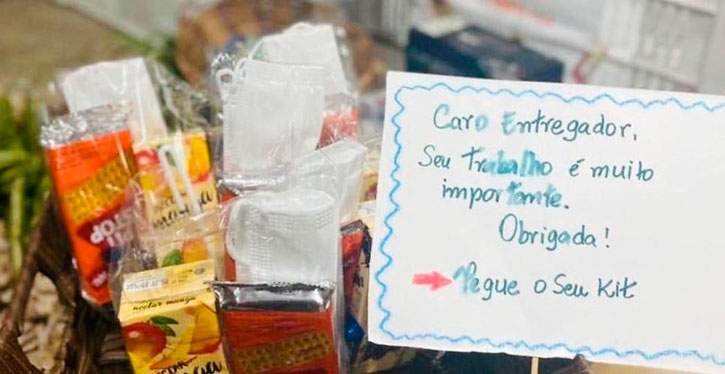 Caro Entregador,
Seu Trabalho é muito
importante.
Obrigada!
Pegue o Seu Kit
nectar manga